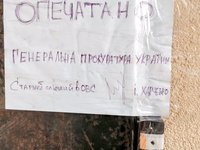 ОПЕЧАТАНО
ГЕНЕРАЛЬНА ПРОКУРАТУРА УКРАЇНИ
Старший слідчий в ОВС